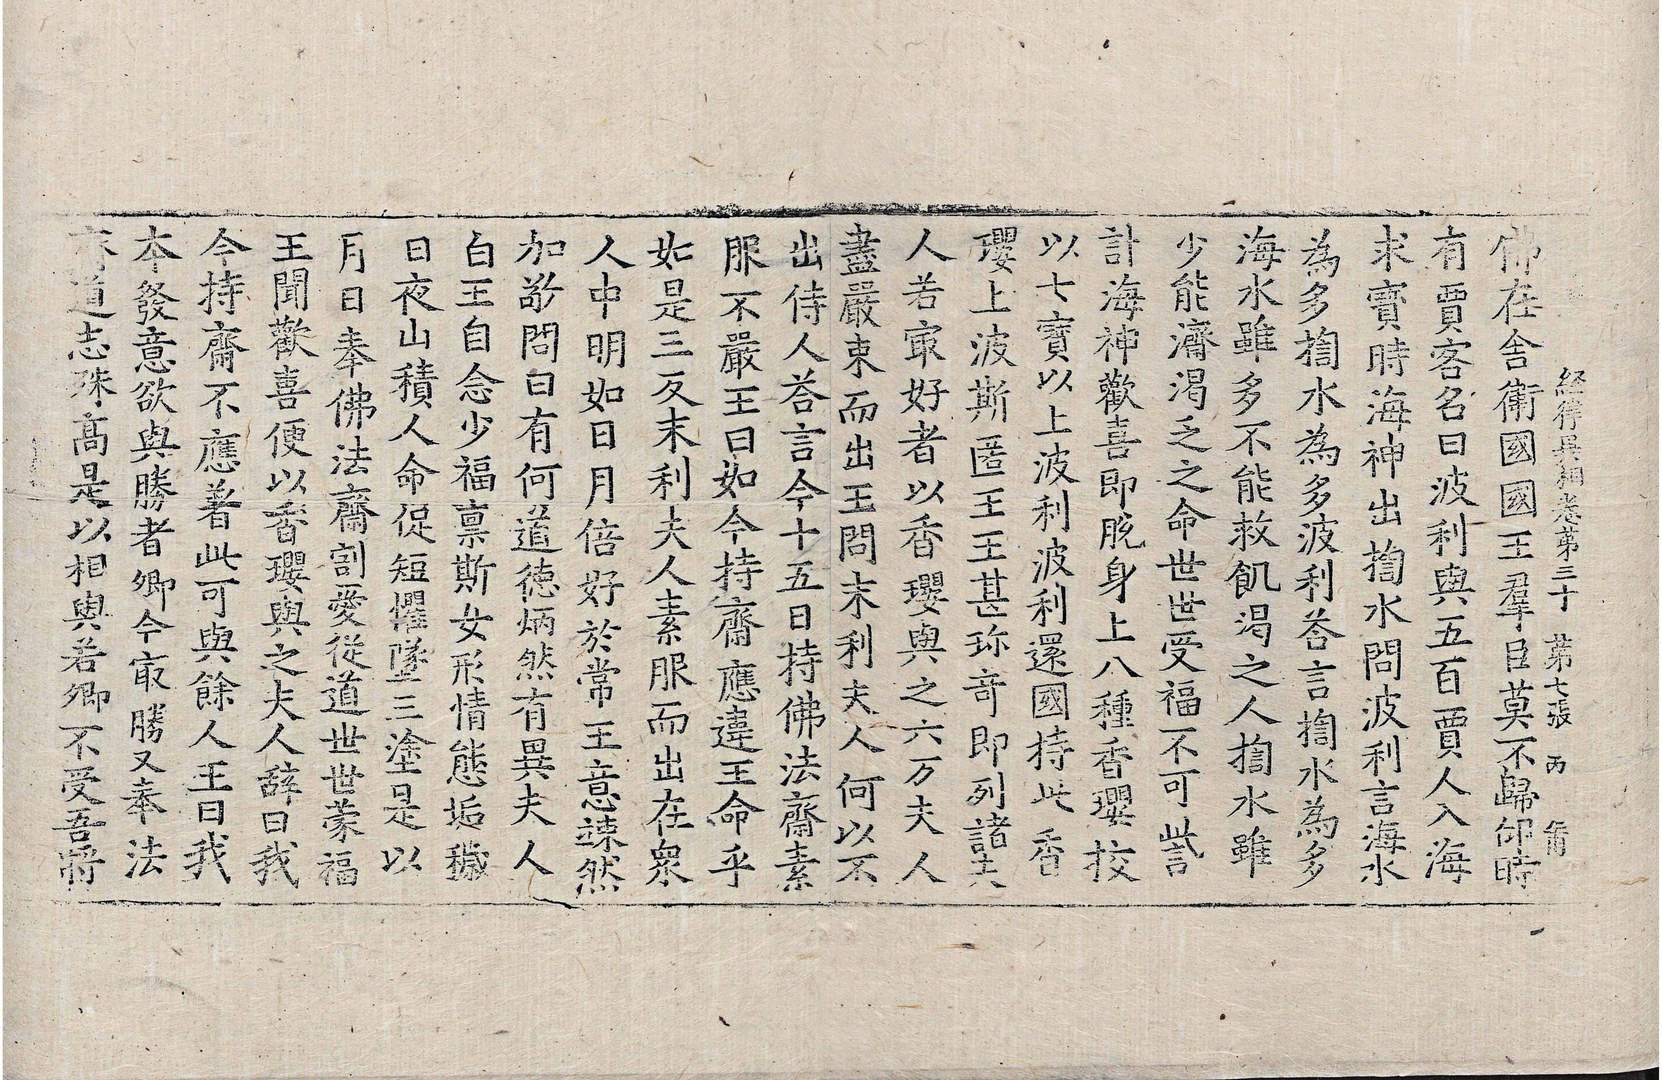 経律異相卷第三十 第七張 丙
佛在舍衛國國王羣臣莫不歸仰時
有賈客名曰波利與五百賈人入海
求寶時海神出掬水問波利言海水
為多掬水為多波利荅言掬水為多
海水雖多不能救飢渴之人掬水雖
少能濟渴乏之命世世受福不可訾
計海神歡喜即脫身上八種香瓔挍
以七寶以上波利波利還國持此香
瓔上波斯匿王王甚珎竒即列諸夫
人若㝡好者以香瓔與之六万夫人
盡嚴束而出王問末利夫人何以不
出侍人荅言今十五日持佛法齋素
服不嚴王曰如今持齋應違王命乎
如是三反末利夫人素服而出在衆
人中明如日月倍好於常王意竦然
加敬問曰有何道德炳然有異夫人
白王自念少福禀斯女形情態垢穢
日夜山積人命促短懼墜三塗是以
月日奉佛法齋割愛從道世世蒙福
王聞歡喜便以香瓔與之夫人辝曰我
今持齋不應著此可與餘人王曰我
本發意欲與勝者卿今㝡勝又奉法
齋道志殊髙是以相與若卿不受吾將